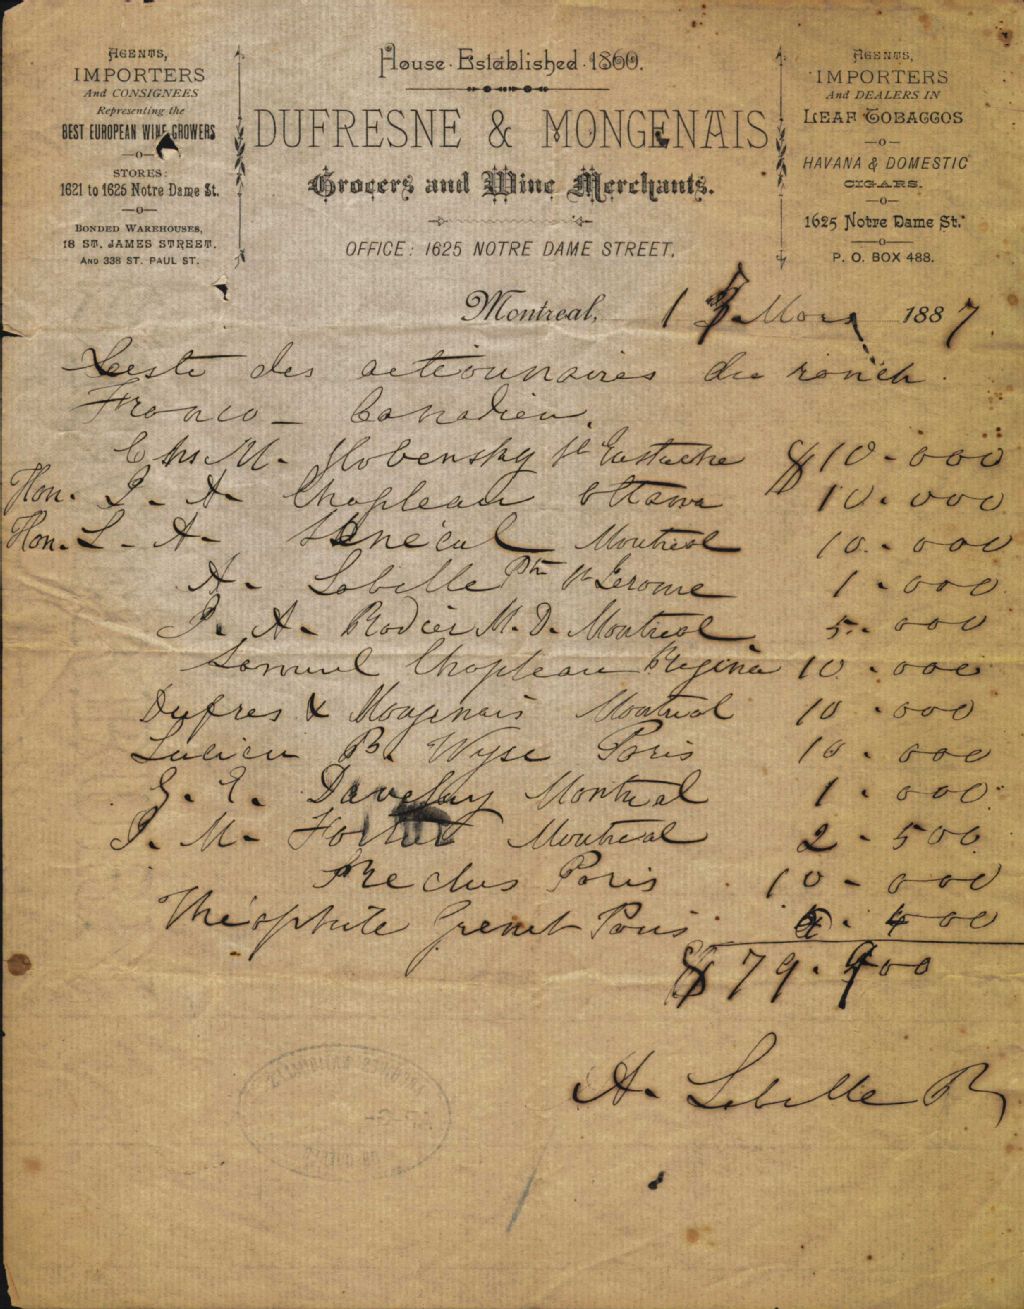 AGENTS,
IMPORTERS
And CONSIGNEES
Representing the
BEST EUROPEAN WINE GROWERS
STORES:
1621 to 1625 Notre Dame St.
BONDED WAREHOUSES,
18 ST. JAMES STREET.
AND 338 ST. PAUL ST.
House Established 1860.
DUFRESNE & MONGENAIS
Grocers and Wine Merchants.
OFFICE: 1625 NOTRE DAME STREET.
AGENTS,
IMPORTERS
And DEALERS IN
LEAF TOBACCOS
HAVANA & DOMESTIC
CIGARS.
1625 Notre Dame St.
P. O. BOX 488.
Montreal, 17 Mars 1887.
Leste des actionnaires du ranch
Franco - Canadien
Chs M. Globensky St Eustache $10.000
Hon. J. A. Chapleau Ottawa 10.000
Hon. L. A. Sénécal Montreal 10.000
A. Labelle Ptr St Jerome 1.000
J. A. Rodier M.D. Montreal 5.000
Samuel Chapleau Regina 10.000
Dufres & Mongenais Montreal 10.000
Lucien B. Wyse Paris 10.000
G. E. Montreal 1.000
J. M. Fortier Montreal 2.500
Reclus Paris 10.000
Théophile Paris 400
$79.900
A. Labelle